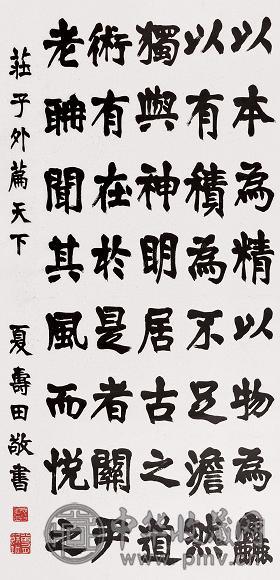 以本為精以物為麤
以有積為不足澹然
獨與神明居古之道
術有在於是者關尹
老聃聞其風而悅之
莊子外篇天下
夏壽田敬書
中华收藏网
www.pmv.cn